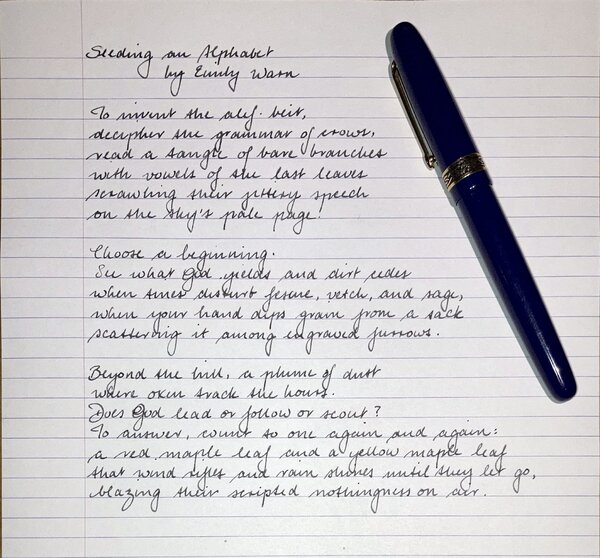 Seeding an Alphabet
by Emily Warn
To invent the alef-beit,
decipher the grammar of crows,
read a tangle of bare branches
with vowels of the last leaves
scrawling their jittery speech
on the sky's pale page.
Choose a beginning.
See what God yields and dirt cedes
when tines disturb fescue, vetch, and sage,
when your hand dips grain from a sack
scattering it among engraved furrows.
Beyond the hill, a plume of dust
where oxen track the hours.
Does God lead or follow or scout?
To answer, count to one again and again:
a red maple leaf and a yellow maple leaf
that wind rifles and rain shines until they let go,
blazing their scripted nothingness on air.